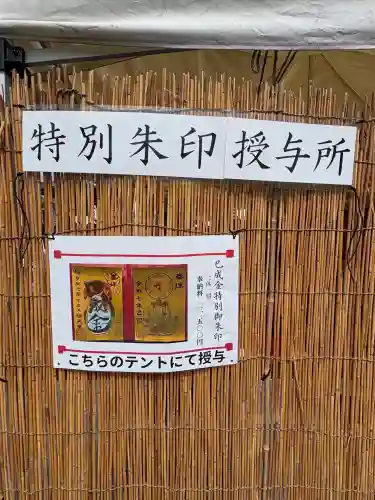 特別朱印授与所
巳成金特別御朱印
奉納料 二、五〇〇円
こちらのテントにて授与